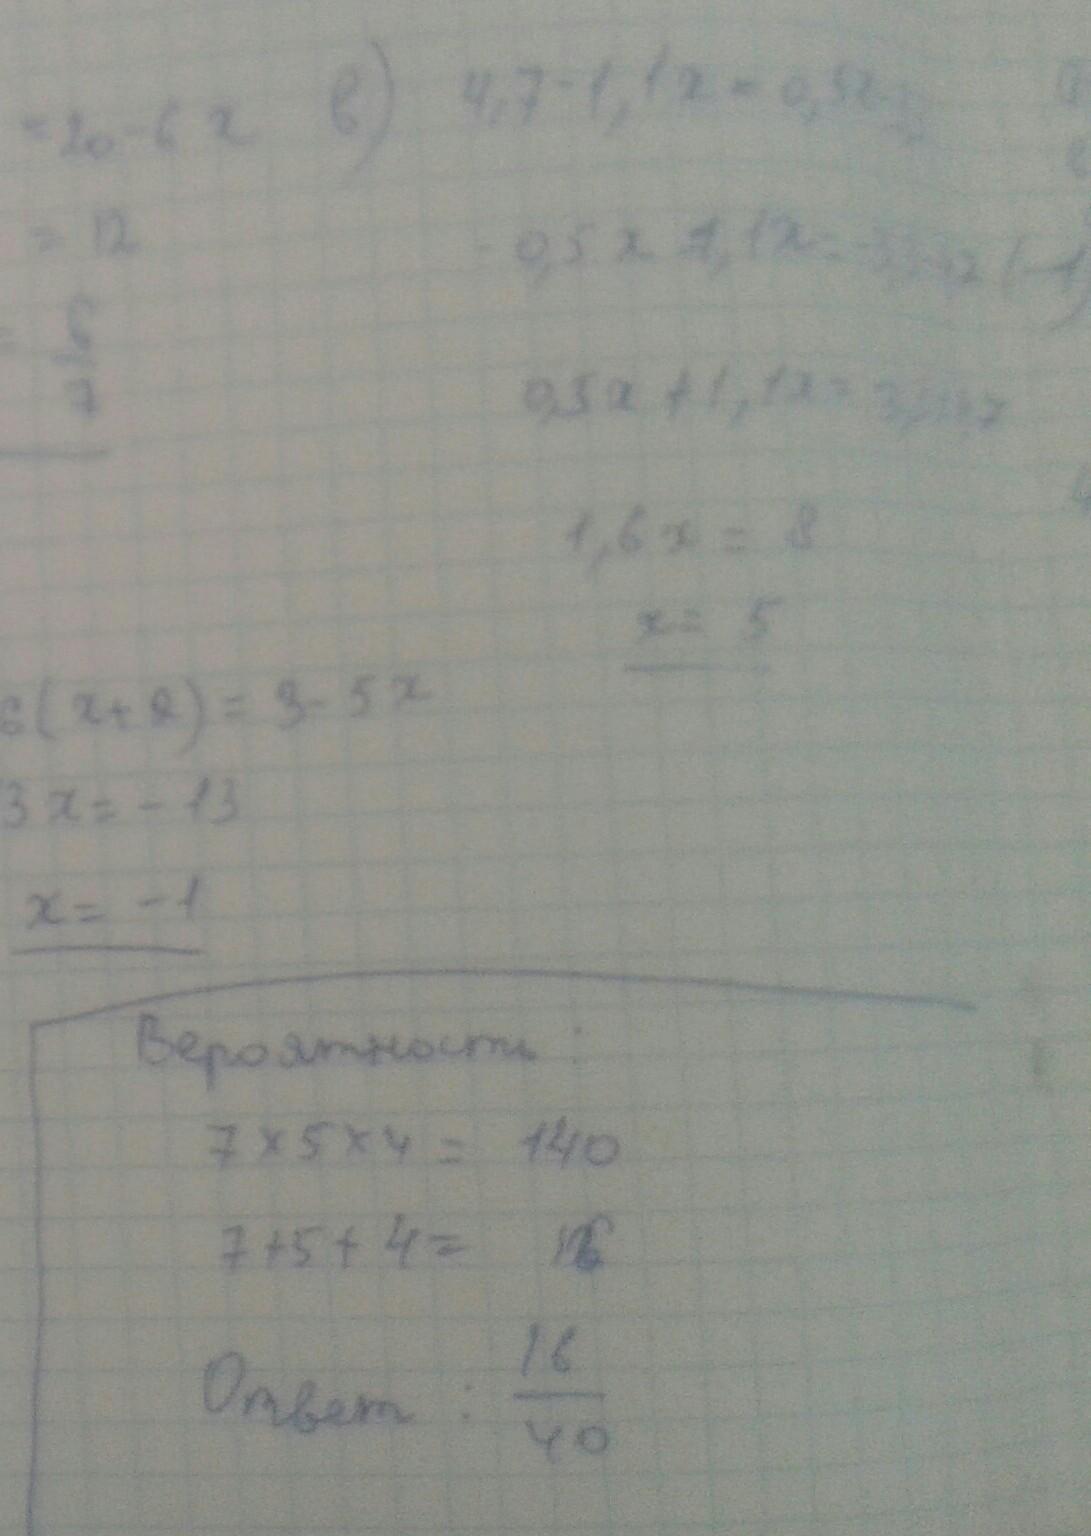 =20-6x
= 12
= 6/7
в) 4,7-1,1x=0,5x-
-0,5x-1,1x= (-1)
0,5x+1,1x=
1,6x = 8
x= 5
6(x+2)=3-5x
3x=-13
x= -1
Вероятность:
7×5×4= 140
7+5+4= 16
Ответ: 16/40